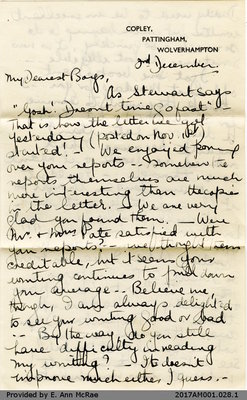 COPLEY,
PATTINGHAM,
WOLVERHAMPTON
3rd December.
My Dearest Boys,
As Stewart says
"Gosh! Doesn't time go fast" -
That is how the letter we got
yesterday (posted on Nov.
started! We enjoyed poring
over your reports - Somehow the
reports themselves are much
more interesting than the copies
in the letter. We are very
glad you found them. - Were
Mr. & Mrs Pate satisfied with
your reports? - We thought them
creditable, but it seems your
writing continues to pull down
your average - Believe me,
though, I am always delighted
to see your writing good or bad
By the way do you still
have difficulty in reading
my writing? - It doesn't
improve much either, I guess. -
Provided by E. Ann McRae
2017AM001.028.1